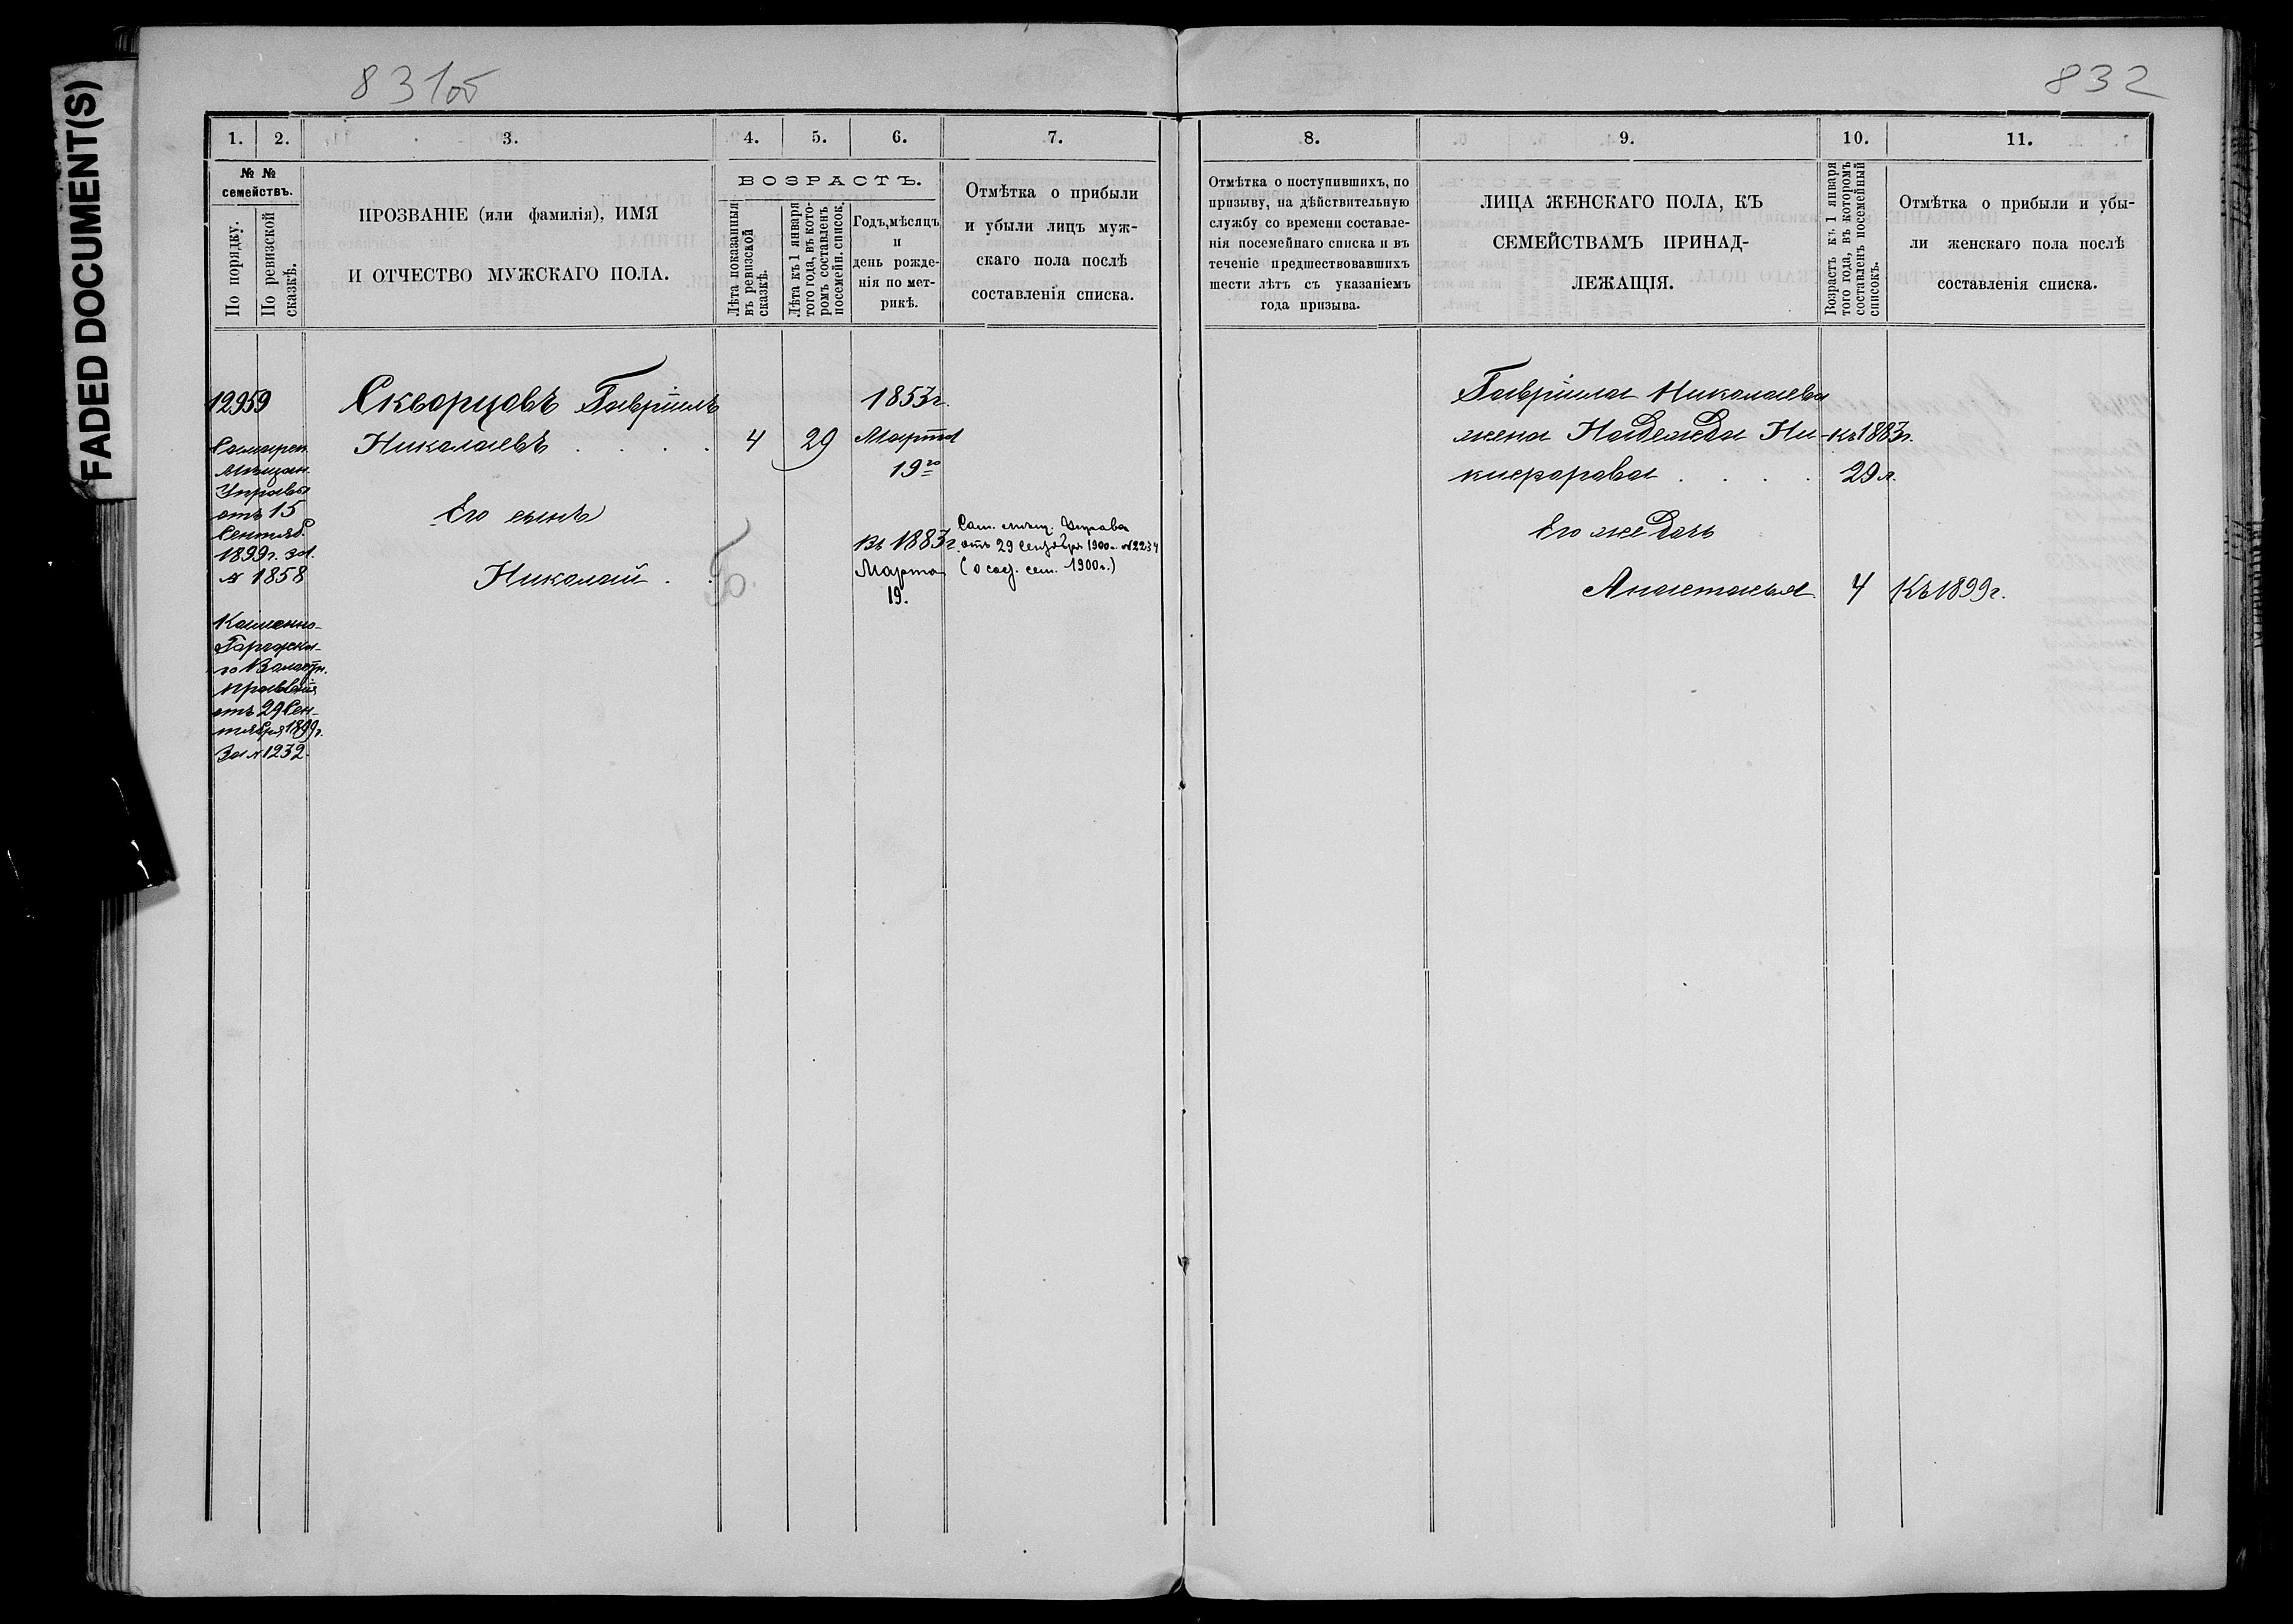 FADED DOCUMENT(S)
831об
832
1. 2. 3. 4. 5. 6. 7.
№ №
семействъ.
По порядку.
По ревизской
сказкѣ.
ПРОЗВАНІЕ (или фамилія), ИМЯ
И ОТЧЕСТВО МУЖСКАГО ПОЛА.
ВОЗРАСТЪ.
Лѣта показанныя
въ ревизской
сказкѣ.
Лѣта къ 1 января
того года, въ кото-
ромъ составленъ
посемейн. список.
Годъ, мѣсяцъ
и
день рожде-
нія по мет-
рикѣ.
Отмѣтка о прибыли
и убыли лицъ муж-
скаго пола послѣ
составленія списка.
12959
Самарск.
Мѣщан.
Управы
отъ 15
Сентяб.
1899г. за
№ 1858
Каменно-
го Волостн.
правленія
отъ 29 Сен-
тября 1899г.
За № 1232.
Скворцовъ Гавріилъ
Николаевъ . . . . 4 29
1853г.
Марта
19го
Его сынъ
Николай . .
Б.
Въ 1883г.
Марта
19.
Сам. мѣщ. Управа
отъ 29 Сентября 1900г. №2234
(о сос. сем. 1900г.)
8. 9. 10. 11.
Отмѣтка о поступившихъ, по
призыву, на дѣйствительную
службу со времени составле-
нія посемейнаго списка и въ
теченіе предшествовавшихъ
шести лѣтъ съ указаніемъ
года призыва.
ЛИЦА ЖЕНСКАГО ПОЛА, КЪ
СЕМЕЙСТВАМЪ ПРИНАД-
ЛЕЖАЩІЯ.
Возрастъ къ 1 января
того года, въ которомъ
составленъ посемейный
списокъ.
Отмѣтка о прибыли и убы-
ли женскаго пола послѣ
составленія списка.
Гавріила Николаева
жена Надежда Ни- Къ 1883г.
кифорова . . . . 29 л.
Его же дочь
Анастасья 4 Къ 1899г.